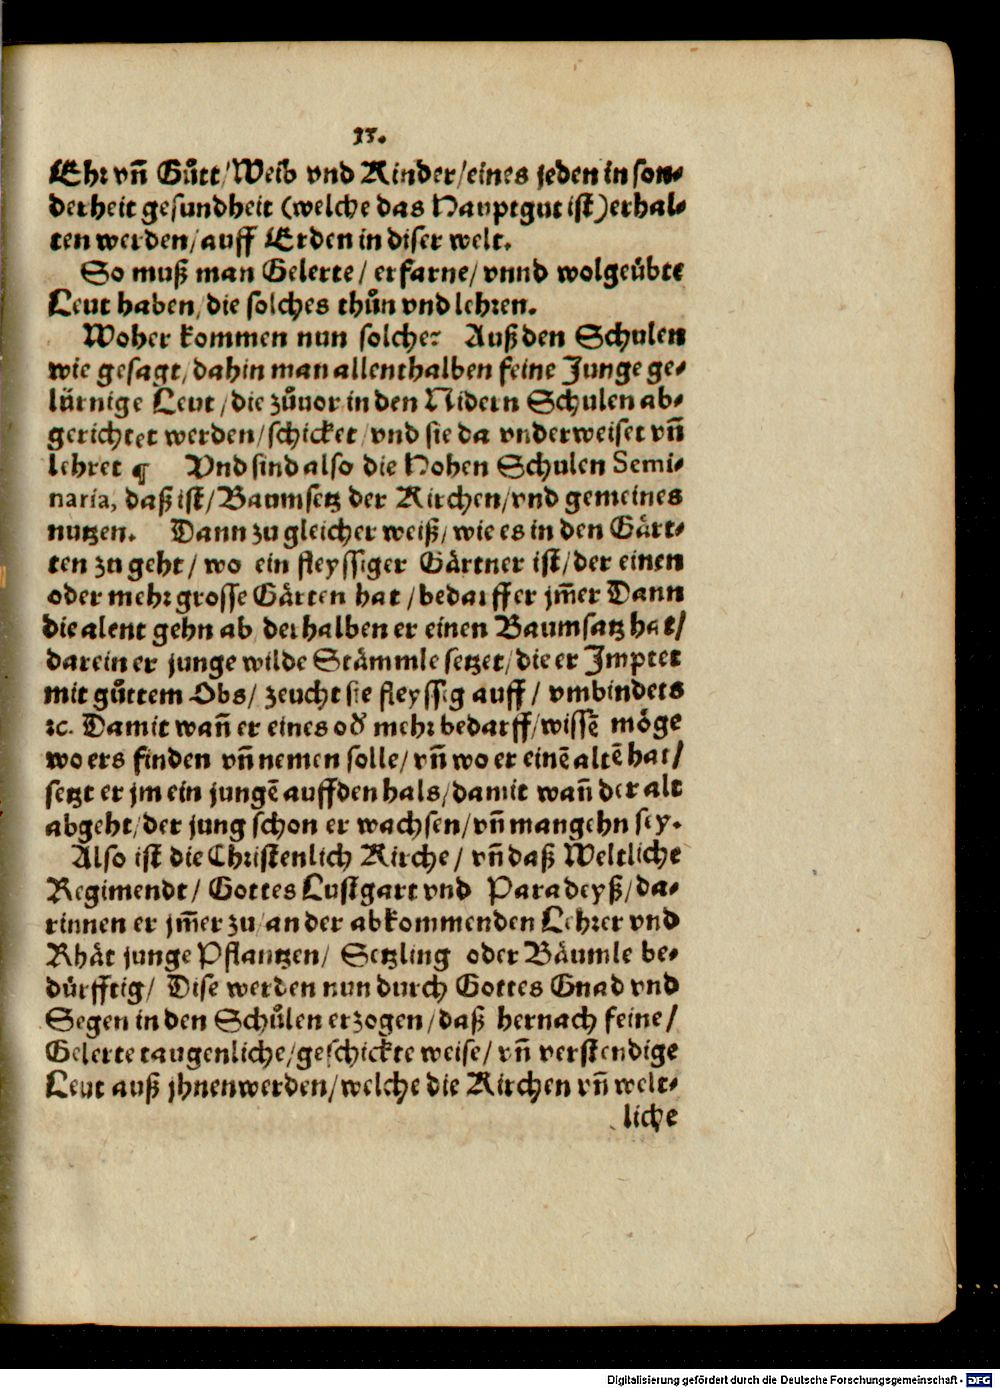 13.
Ehr vn̄ Gůtt/Weib vnd Kinder/eines jeden in son⸗
derheit gesundheit (welche das Hauptgut ist) erhal⸗
ten werden/auff Erden in diser welt.
So muß man Gelerte/ erfarne/ vnnd wolgeübte
Leut haben/die solches thůn vnd lehren.
Woher kommen nun solche? Auß den Schulen
wie gesagt/dahin man allenthalben feine Junge ge⸗
lürnige Leut/die zůuor in den Nidern Schulen ab⸗
gerichtet werden/schicket/vnd sie da vnderweiset vn̄
lehret ¶ Vnd sind also die Hohen Schulen Semi⸗
naria, daß ist/Baumsetz der Kirchen/vnd gemeines
nutzen. Dann zu gleicher weiß/wie es in den Gärt⸗
ten zu geht/ wo ein fleyssiger Gärtner ist/der einen
oder mehr grosse Gärten hat/bedarff er jm̄er Dann
die alent gehn ab derhalben er einen Baumsatz hat/
darein er junge wilde Stämmle setzet/die er Imptet
mit gůttem Obs/ zeucht sie fleyssig auff/ vmbindets
ꝛc. Damit wan̄ er eines oď mehr bedarff/wissē möge
wo ers finden vn̄ nemen solle/vn̄ wo er einē altē hat/
setzt er jm ein jungē auff den hals/damit wan̄ der alt
abgeht/der jung schon er wachsen/vn̄ mangehn sey.
Also ist die Christenlich Kirche/ vn̄ daß Weltliche
Regimendt/ Gottes Lustgart vnd Paradeyß/da⸗
rinnen er jm̄er zu/an der abkommenden Lehrer vnd
Rhät junge Pflantzen/ Setzling oder Bäumle be⸗
dürfftig/ Dise werden nun durch Gottes Gnad vnd
Segen in den Schůlen erzogen/daß hernach feine/
Gelerte taugenliche/geschickte weise/ vn̄ verstendige
Leut auß jhnen werden/welche die Kirchen vn̄ welt⸗
liche
Digitalisierung gefördert durch die Deutsche Forschungsgemeinschaft - DFG